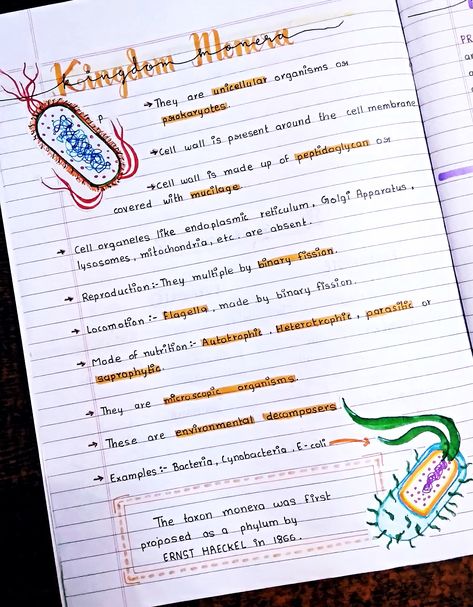 Kingdom Monera
→ They are unicellular organisms or
prokaryotes.
→ Cell wall is present around the cell membrane
→ Cell wall is made up of peptidoglycan or
covered with mucilage.
→ Cell organeles like endoplasmic reticulum, Golgi Apparatus,
lysosomes, mitochondria, etc. are absent.
→ Reproduction:- They multiple by binary fission.
→ Locomotion:- Flagella, made by binary fission.
→ Mode of nutrition:- Autotrophic, Heterotrophic, parasitic or
saprophytic.
→ They are microscopic organisms.
→ These are environmental decomposers.
→ Examples:- Bacteria, Cynobacteria, E-coli
The taxon monera was first
proposed as a phylum by
ERNST HAECKEL in 1866.